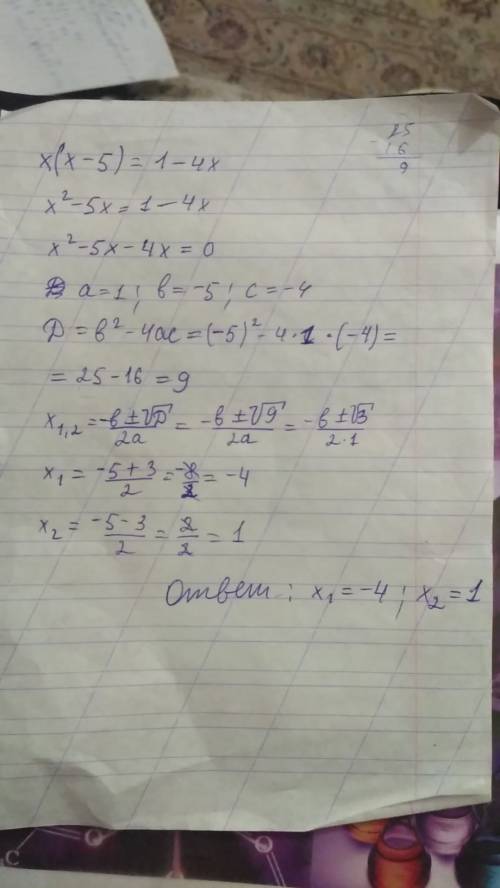 25
- 16
9
x(x-5) = 1-4x
x²-5x = 1-4x
x²-5x-4x = 0
a=1; b=-5; c=-4
Д = b²-4ac = (-5)²-4·1·(-4) =
= 25-16 = 9
x₁,₂ = -b±√D/2a = -b±√9/2a = -b±√3/2·1
x₁ = -5+3/2 = -8/2 = -4
x₂ = -5-3/2 = 2/2 = 1
Ответ: x₁ = -4; x₂ = 1
C